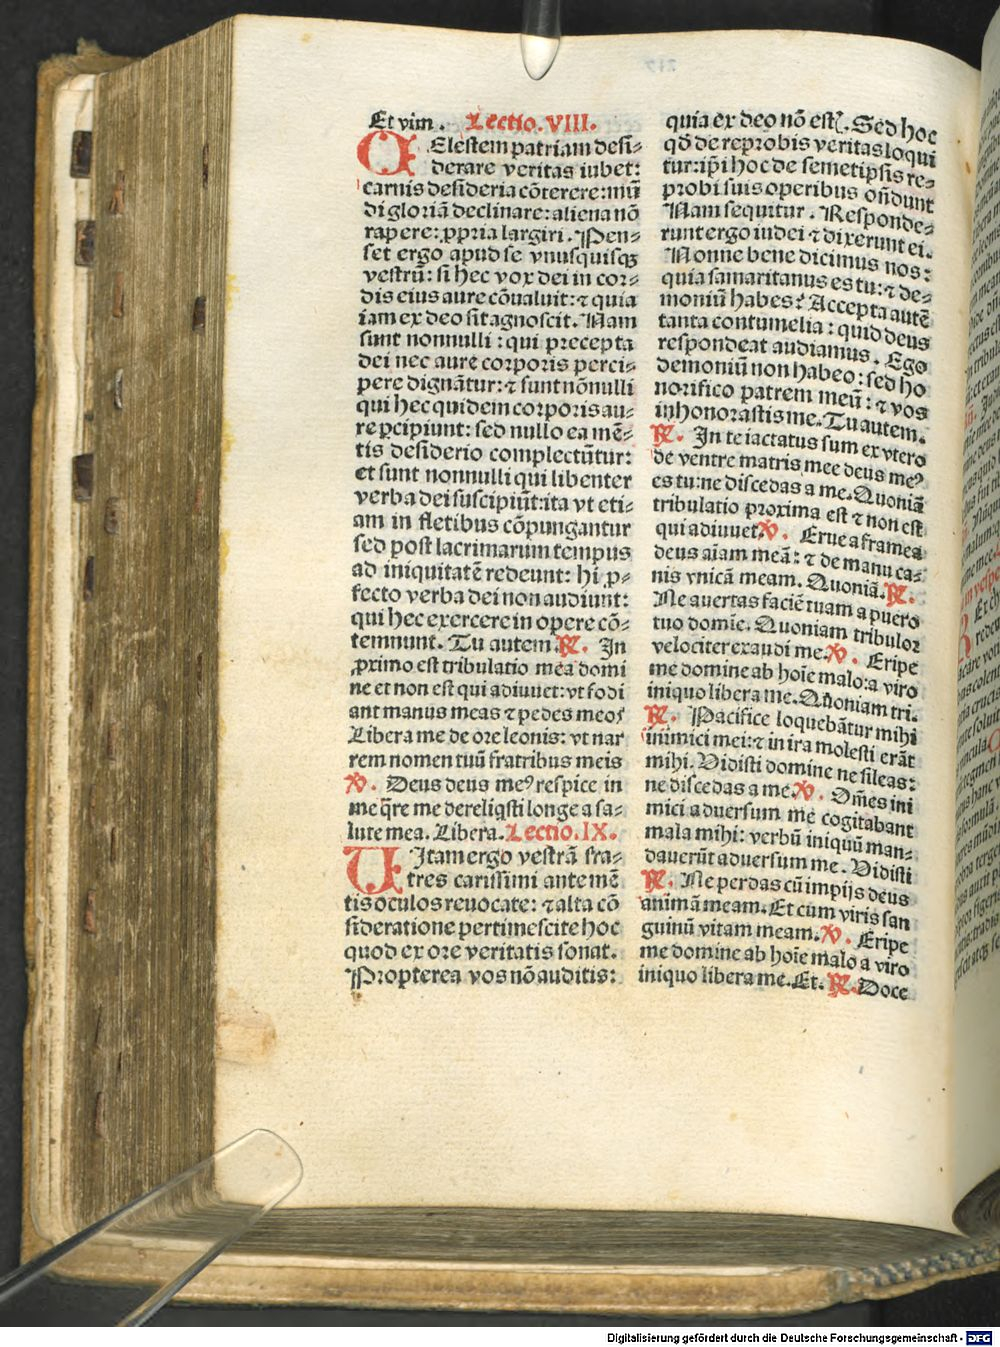 Et vim. Lectio. VIII.
CElestem patriam desi-
derare veritas iubet:
carnis desideria cōterere: mū
di gloriā declinare: aliena nō
rapere: ꝓpria largiri. Pen-
set ergo apud se vnusquisqꝫ
vestrū: si hec vox dei in cor-
dis eius aure cōualuit: ⁊ quia
iam ex deo sit agnoscit. Nam
sunt nonnulli: qui precepta
dei nec aure corporis perci-
pere dignātur: ⁊ sunt nōnulli
qui hec quidem corporis au-
re ꝑcipiunt: sed nullo ea mē-
tis desiderio complectūtur:
et sunt nonnulli qui libenter
verba dei suscipiūt: ita vt eti-
am in fletibus cōpungantur
sed post lacrimarum tempus
ad iniquitatē redeunt: hi ꝓ-
fecto verba dei non audiunt:
qui hec exercere in opere cō-
temnunt. Tu autem ℟. In
ꝓximo est tribulatio mea domi
ne et non est qui adiuuet: vt fodi
ant manus meas ⁊ pedes meos
Libera me de ore leonis: vt nar
rem nomen tuū fratribus meis
℣. Deus deus meꝰ respice in
me q̄re me dereliqsti longe a sa-
lute mea. Libera. Lectio. IX.
UItam ergo vestrā fra-
tres carissimi ante mē
tis oculos reuocate: ⁊ alta cō
sideratione pertimescite hoc
quod ex ore veritatis sonat.
Propterea vos nō auditis:
quia ex deo nō estꝭ. Sed hoc
qd̄ de reprobis veritas loqui
tur: ip̄i hoc de semetipsis re-
probi suis operibus on̄dunt
Nam sequitur. Responde-
runt ergo iudei ⁊ dixerunt ei.
Nonne bene dicimus nos:
quia samaritanus es tu: ⁊ de-
moniū habes? Accepta autē
tanta contumelia: quid deus
respondeat audiamus. Ego
demoniū non habeo: sed ho
norifico patrem meū: ⁊ vos
inhonorastis me. Tu autem.
℟. In te iactatus sum ex vtero
de ventre matris mee deus meꝰ
es tu: ne discedas a me. Quoniā
tribulatio proxima est ⁊ non est
qui adiuuet ℣. Erue a framea
deus aīam meā: ⁊ de manu ca-
nis vnicā meam. Quoniā. ℟.
Ne auertas faciē tuam a puero
tuo domīe. Quoniam tribulor
velociter exaudi me ℣. Eripe
me domine ab hoīe malo: a viro
iniquo libera me. Quoniam tri.
℟. Pacifice loquebātur mihi
inimici mei: ⁊ in ira molesti erāt
mihi. Vidisti domine ne sileas:
ne discedas a me. ℣. Om̄es ini
mici aduersum me cogitabant
mala mihi: verbū iniquū man-
dauerūt aduersum me. Vidisti
℟. Ne perdas cū impijs deus
animā meam. Et cum viris san
guinū vitam meam. ℣. Eripe
me domine ab hoīe malo a viro
iniquo libera me. Et. ℟. Doce
Digitalisierung gefördert durch die Deutsche Forschungsgemeinschaft - DFG